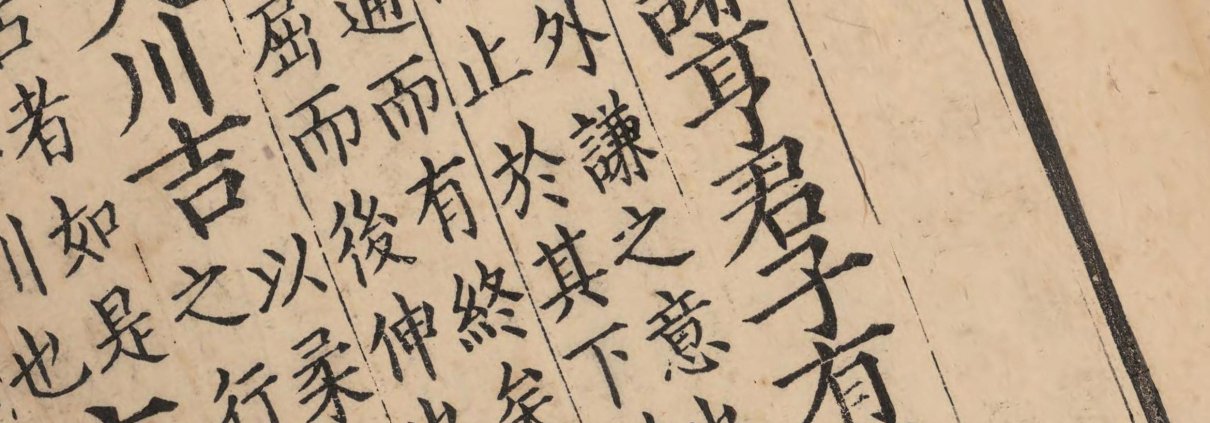 謙亨君子有
外謙之意也
止於其下
通而有終矣
屈而後伸
川吉
以柔
之行
者如是
川也